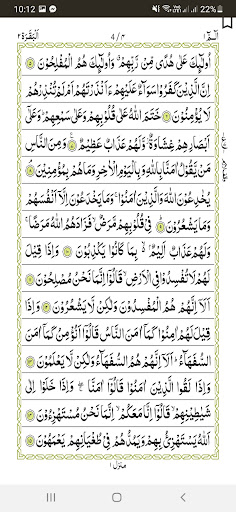 10:12 22%
الٓمّٓ ١ 4/۴ اَلْبَقَرَة ٢
اُولٰٓئِكَ عَلٰى هُدًى مِّنْ رَّبِّهِمْ وَاُولٰٓئِكَ هُمُ الْمُفْلِحُوْنَ ۝٥
اِنَّ الَّذِيْنَ كَفَرُوْا سَوَآءٌ عَلَيْهِمْ ءَاَنْذَرْتَهُمْ اَمْ لَمْ تُنْذِرْهُمْ
لَا يُؤْمِنُوْنَ ۝٦ خَتَمَ اللّٰهُ عَلٰى قُلُوْبِهِمْ وَعَلٰى سَمْعِهِمْ وَعَلٰٓى
اَبْصَارِهِمْ غِشَاوَةٌ وَّلَهُمْ عَذَابٌ عَظِيْمٌ ۝٧ وَمِنَ النَّاسِ
مَنْ يَّقُوْلُ اٰمَنَّا بِاللّٰهِ وَبِالْيَوْمِ الْاٰخِرِ وَمَا هُمْ بِمُؤْمِنِيْنَ ۝٨
يُخٰدِعُوْنَ اللّٰهَ وَالَّذِيْنَ اٰمَنُوْا وَمَا يَخْدَعُوْنَ اِلَّآ اَنْفُسَهُمْ
وَمَا يَشْعُرُوْنَ ۝٩ فِيْ قُلُوْبِهِمْ مَّرَضٌ فَزَادَهُمُ اللّٰهُ مَرَضًا
وَلَهُمْ عَذَابٌ اَلِيْمٌ بِمَا كَانُوْا يَكْذِبُوْنَ ۝١٠ وَاِذَا قِيْلَ
لَهُمْ لَا تُفْسِدُوْا فِي الْاَرْضِ قَالُوْٓا اِنَّمَا نَحْنُ مُصْلِحُوْنَ ۝١١
اَلَآ اِنَّهُمْ هُمُ الْمُفْسِدُوْنَ وَلٰكِنْ لَّا يَشْعُرُوْنَ ۝١٢ وَاِذَا
قِيْلَ لَهُمْ اٰمِنُوْا كَمَآ اٰمَنَ النَّاسُ قَالُوْٓا اَنُؤْمِنُ كَمَآ اٰمَنَ
السُّفَهَآءُ اَلَآ اِنَّهُمْ هُمُ السُّفَهَآءُ وَلٰكِنْ لَّا يَعْلَمُوْنَ ۝١٣
وَاِذَا لَقُوا الَّذِيْنَ اٰمَنُوْا قَالُوْٓا اٰمَنَّا وَاِذَا خَلَوْا اِلٰى
شَيٰطِيْنِهِمْ قَالُوْٓا اِنَّا مَعَكُمْ اِنَّمَا نَحْنُ مُسْتَهْزِءُوْنَ ۝١٤
اَللّٰهُ يَسْتَهْزِئُ بِهِمْ وَيَمُدُّهُمْ فِيْ طُغْيَانِهِمْ يَعْمَهُوْنَ ۝١٥
منزل ١